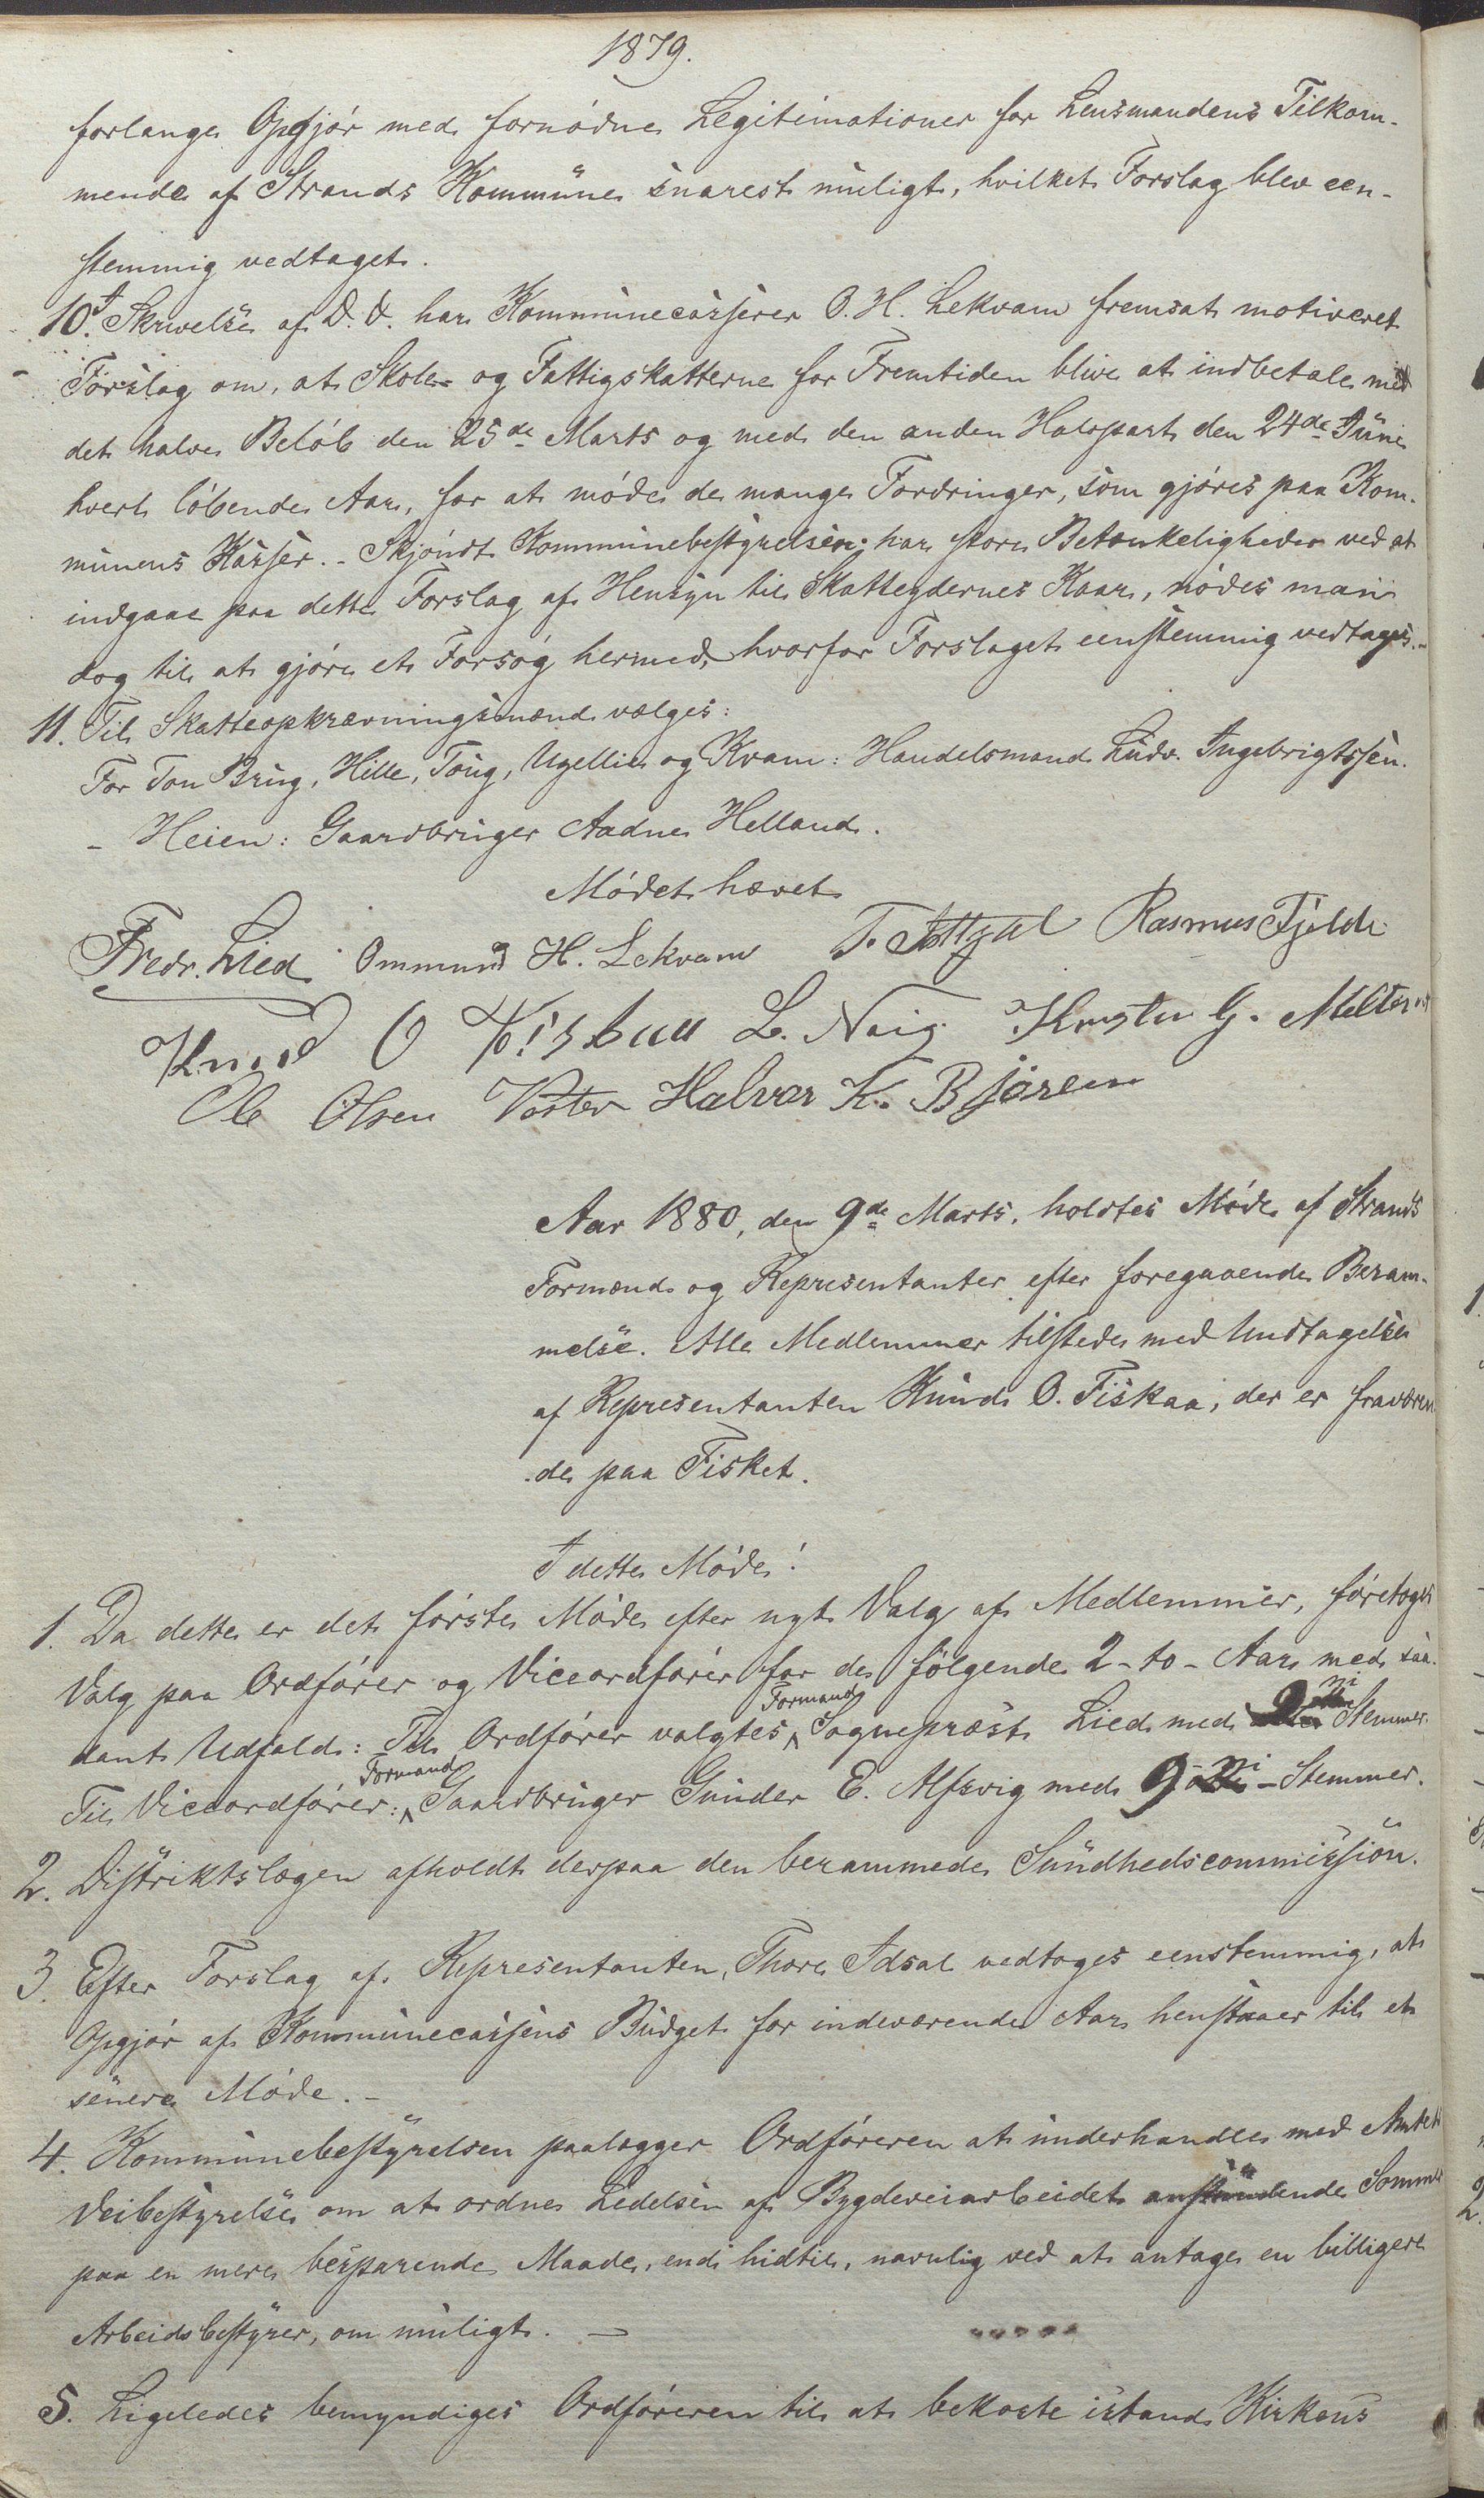 1879.
forlange Opgjør med fornødne Legitimationer for Lensmandens Tilkom-
mende af Strands Kommune snarest muligt, hvilket Forslag blev een-
stemmig vedtaget.
10. I Skrivelse af D. D. har Kommunecasserer O. H. Lekvam fremsat motiveret
Forslag om, at Skole- og Fattigskatterne for Fremtiden blive at indbetale med
det halve Beløb den 25de Marts og med den anden Halvpart den 24de Juni
hvert løbende Aar, for at møde de mange Fordringer, som gjøres paa Kom-
munens Kasser. - Skjøndt Kommunebestyrelsen har store Betænkeligheder ved at
indgaae paa dette Forslag af Hensyn til Skatteydernes Kaar, nødes man
dog til at gjøre et Forsøg hermed, hvorfor Forslaget eenstemmig vedtages. -
11. Til Skatteopkrævningsmænd vælges:
For Tou Brug, Hille, Toug, Ugellie og Kvam: Handelsmand Ludv. Ingebrigtssen.
- Heien: Gaardbruger Aadne Helland.
Mødet hævet
Fredr. Lied Ommund H. Lekvam T. Rasmus Fjelde
Knud O L. Naig G.
Ole Olsen Halvor K.
Aar 1880, den 9de Marts, holdtes Møde af Strands
Formænd og Representanter efter foregaaende Beram-
melse. Alle Medlemmer tilstede med Undtagelse
af Representanten Knud O. Fiskaa, der er fraværen-
de paa Fisket.
I dette Møde:
1. Da dette er det første Møde efter nyt Valg af Medlemmer, foretoges
Valg paa Ordfører og Viceordfører for de følgende 2 - to - Aar med saa-
dant Udfald: Til Ordfører valgtes Formand Sogneprest Lied med 9 ni Stemmer.
Til Viceordfører: Formand Gaardbruger Gunder E. Alsvig med 9 - ni - Stemmer.
2. Distriktslægen afholdt derpaa den berammede Sundhedscommission.
3. Efter Forslag af Representanten, Thore Idsal vedtoges eenstemmig, at
Opgjør af Kommunecassens Budget for indeværende Aar henstaaer til et
senere Møde. -
4. Kommunebestyrelsen paalægger Ordføreren at underhandle med Amtets
Veibestyrelse om at ordne Ledelsen af Bygdeveiarbeidet anstundende Sommer
paa en mere besparende Maade, end hidtil, navnlig ved at antage en billigere
Arbeidsbestyrer, om muligt. -
5. Ligeledes bemyndiges Ordføreren til at bekoste istand Kirkens